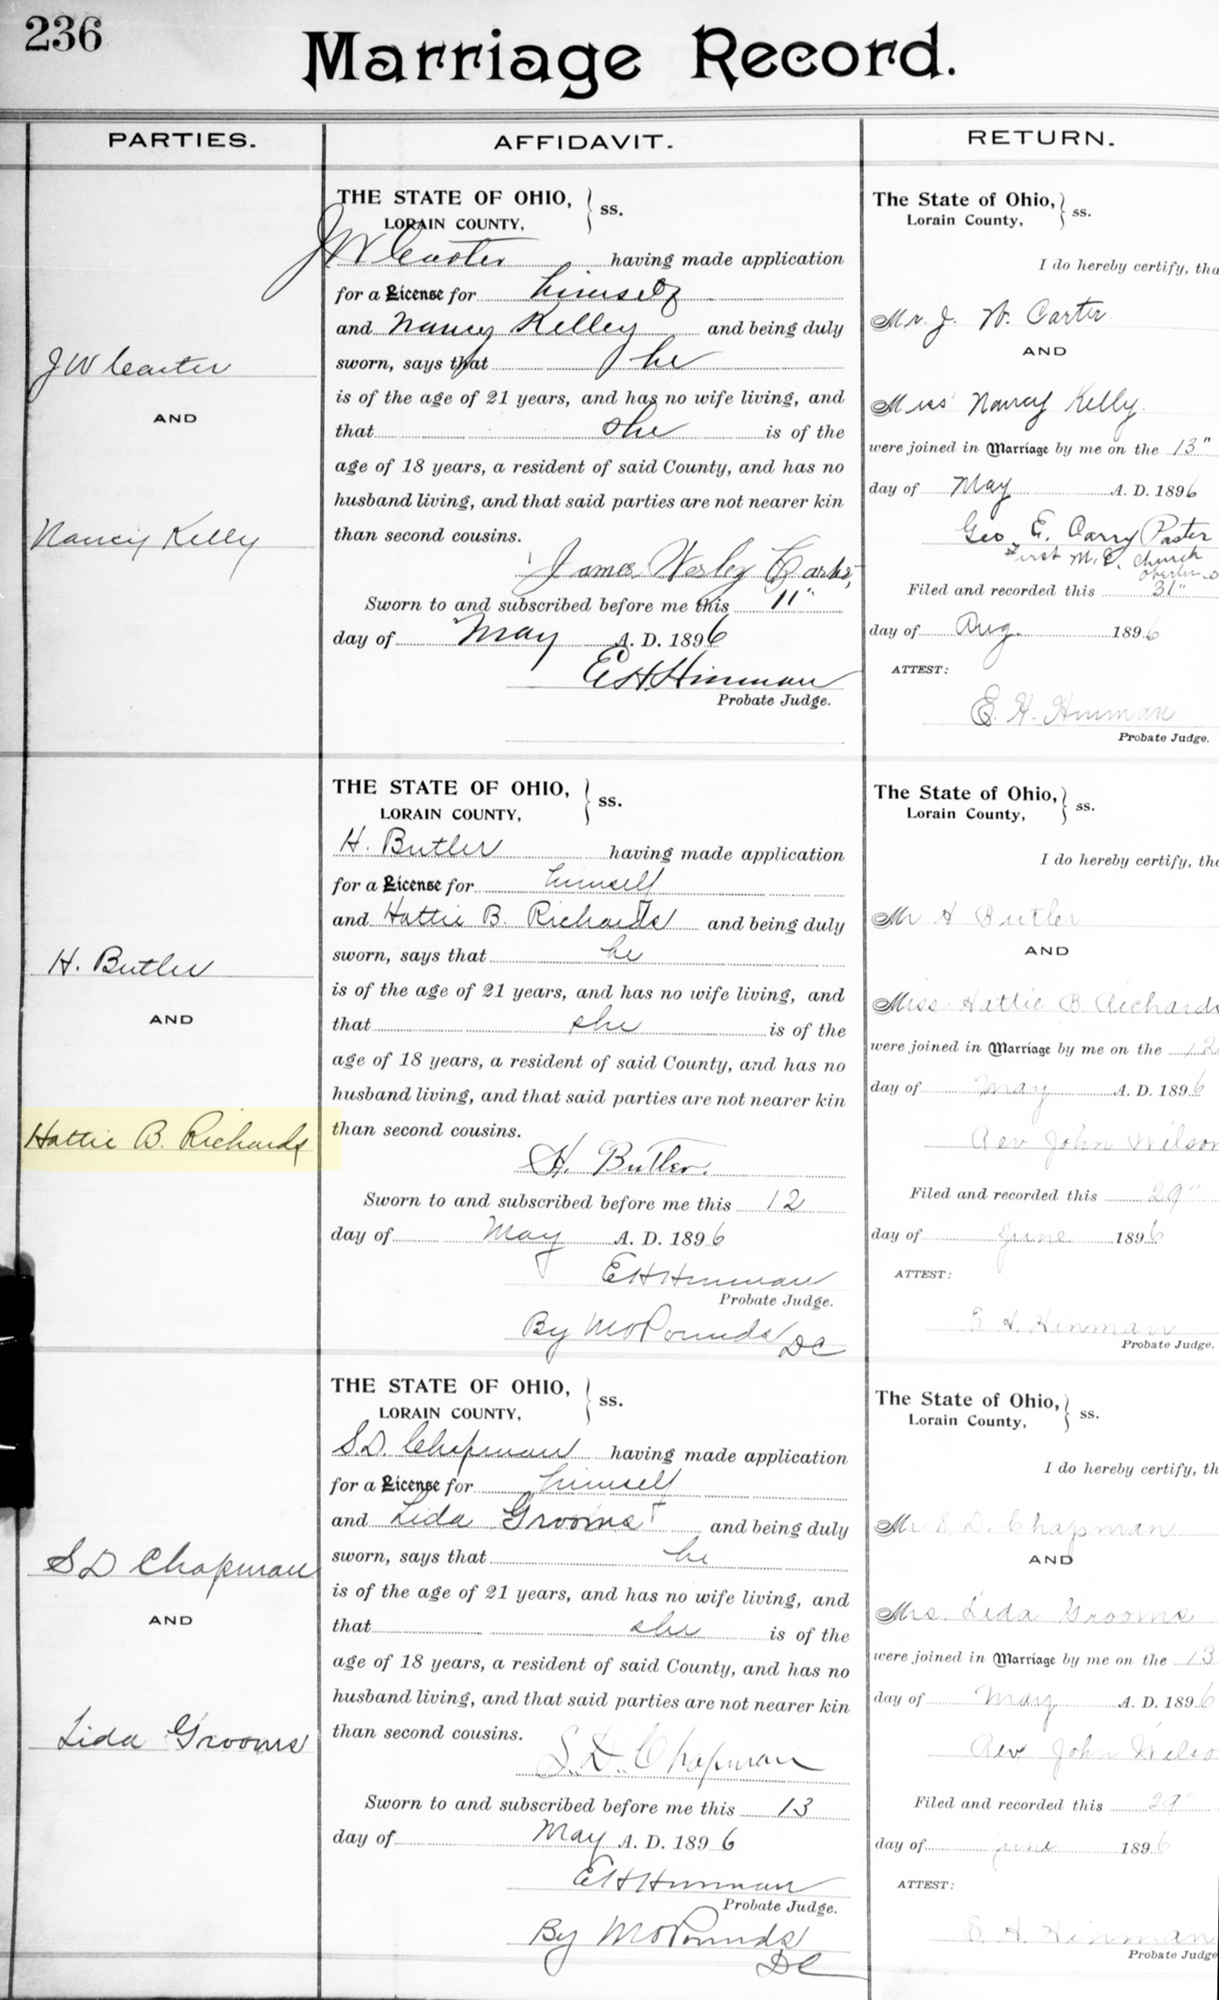 236
Marriage Record.
PARTIES.
J W Carter
AND
Nancy Kelly
H. Butler
AND
Hattie B. Richards
S D Chapman
AND
Lida Grooms
AFFIDAVIT.
THE STATE OF OHIO,
LORAIN COUNTY, } ss.
J W Carter having made application
for a License for himself
and Nancy Kelley and being duly
sworn, says that he
is of the age of 21 years, and has no wife living, and
that she is of the
age of 18 years, a resident of said County, and has no
husband living, and that said parties are not nearer kin
than second cousins.
James Wesley Carter
Sworn to and subscribed before me this 11"
day of May A. D. 1896
E H Hinman
Probate Judge.
THE STATE OF OHIO,
LORAIN COUNTY, } ss.
H. Butler having made application
for a License for himself
and Hattie B. Richards and being duly
sworn, says that he
is of the age of 21 years, and has no wife living, and
that she is of the
age of 18 years, a resident of said County, and has no
husband living, and that said parties are not nearer kin
than second cousins.
H. Butler.
Sworn to and subscribed before me this 12
day of May A. D. 1896
E H Hinman
Probate Judge.
By M O Pounds DC
THE STATE OF OHIO,
LORAIN COUNTY, } ss.
S. D. Chapman having made application
for a License for himself
and Lida Grooms and being duly
sworn, says that he
is of the age of 21 years, and has no wife living, and
that she is of the
age of 18 years, a resident of said County, and has no
husband living, and that said parties are not nearer kin
than second cousins.
S. D. Chapman
Sworn to and subscribed before me this 13
day of May A. D. 1896
E H Hinman
Probate Judge.
By M O Pounds
DC
RETURN.
The State of Ohio,
Lorain County, } ss.
I do hereby certify, tha
Mr. J. W. Carter
AND
Miss Nancy Kelly.
were joined in Marriage by me on the 13"
day of May A. D. 1896
Geo. E. Carry Pastor
First M. E. Church
Oberlin O
Filed and recorded this 31"
day of Aug. 1896
ATTEST:
E. H. Hinman
Probate Judge.
The State of Ohio,
Lorain County, } ss.
I do hereby certify, tha
Mr H Butler
AND
Miss Hattie B. Richards
were joined in Marriage by me on the 12
day of May A. D. 1896
Rev John Wilson
Filed and recorded this 29"
day of June 1896
ATTEST:
E. H. Hinman
Probate Judge.
The State of Ohio,
Lorain County, } ss.
I do hereby certify, th
Mr S. D. Chapman
AND
Mrs. Lida Grooms
were joined in Marriage by me on the 13
day of May A. D. 1896
Rev John Wilso
Filed and recorded this 29"
day of June 1896
ATTEST:
E. H. Hinman
Probate Judge